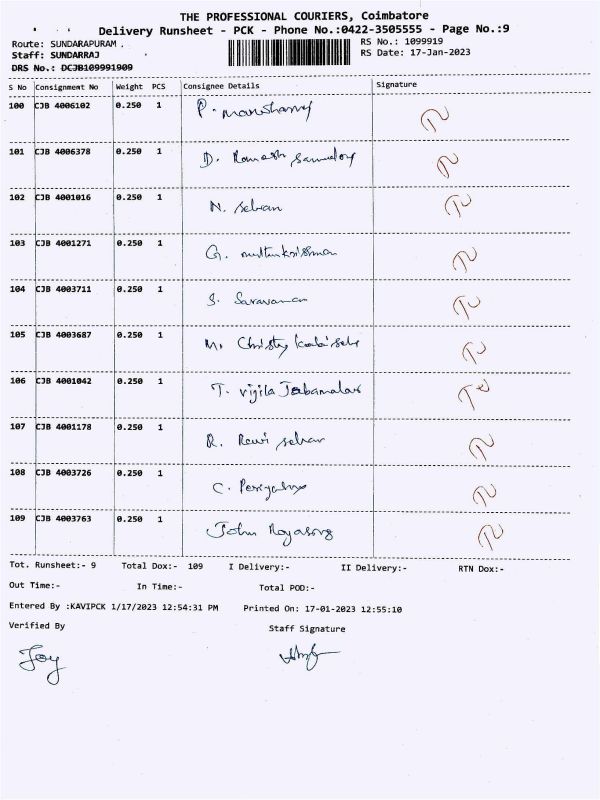 THE PROFESSIONAL COURIERS, Coimbatore
Delivery Runsheet - PCK - Phone No.:0422-3505555 - Page No.:9
Route: SUNDARAPURAM .
RS No.: 1099919
Staff: SUNDARRAJ
RS Date: 17-Jan-2023
DRS No.: DCJB109991909
S No Consignment No Weight PCS Consignee Details Signature
100 CJB 4006102 0.250 1 P.
101 CJB 4006378 0.250 1 D. Ramesh
102 CJB 4001016 0.250 1 N. Selvan
103 CJB 4001271 0.250 1 G. muthukrishnan
104 CJB 4003711 0.250 1 S. Saravanan
105 CJB 4003687 0.250 1 M. Christy
106 CJB 4001042 0.250 1 T. Vijila Jebamalar
107 CJB 4001178 0.250 1 R. selvan
108 CJB 4003726 0.250 1 C.
109 CJB 4003763 0.250 1 John
Tot. Runsheet:- 9 Total Dox:- 109 I Delivery:- II Delivery:- RTN Dox:-
Out Time:- In Time:- Total POD:-
Entered By :KAVIPCK 1/17/2023 12:54:31 PM Printed On: 17-01-2023 12:55:10
Verified By Staff Signature
Joy